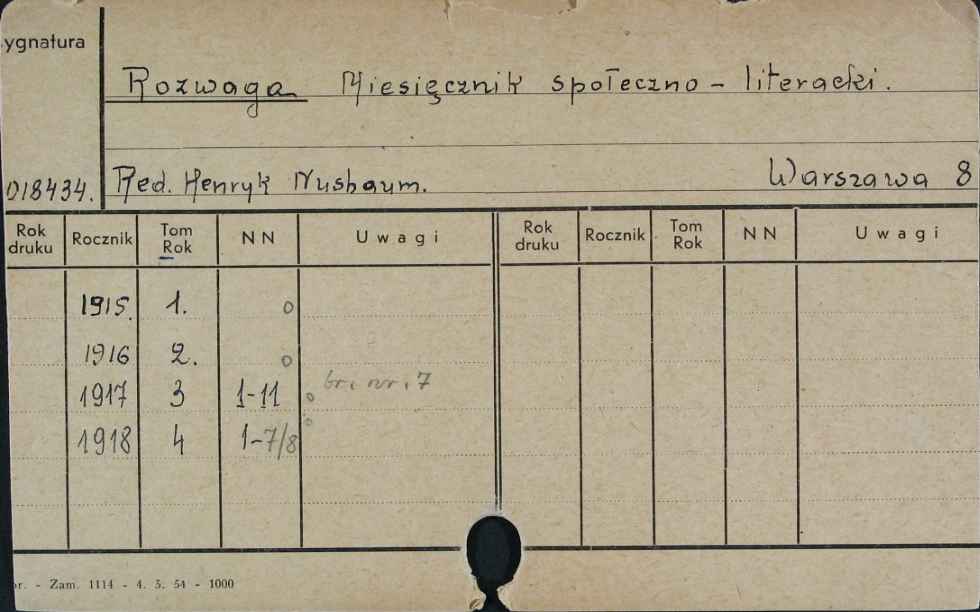 ygnatura
Rozwaga Miesięcznik społeczno - literacki.
018434. Red. Henryk Nusbaum. Warszawa 8
Rok druku Rocznik Tom Rok NN Uwagi Rok druku Rocznik Tom Rok NN Uwagi
1915. 1. o
1916 2. o
1917 3 1-11 o br. nr. 7
1918 4 1-7/8 o
r. - Zam. 1114 - 4. 3. 54 - 1000